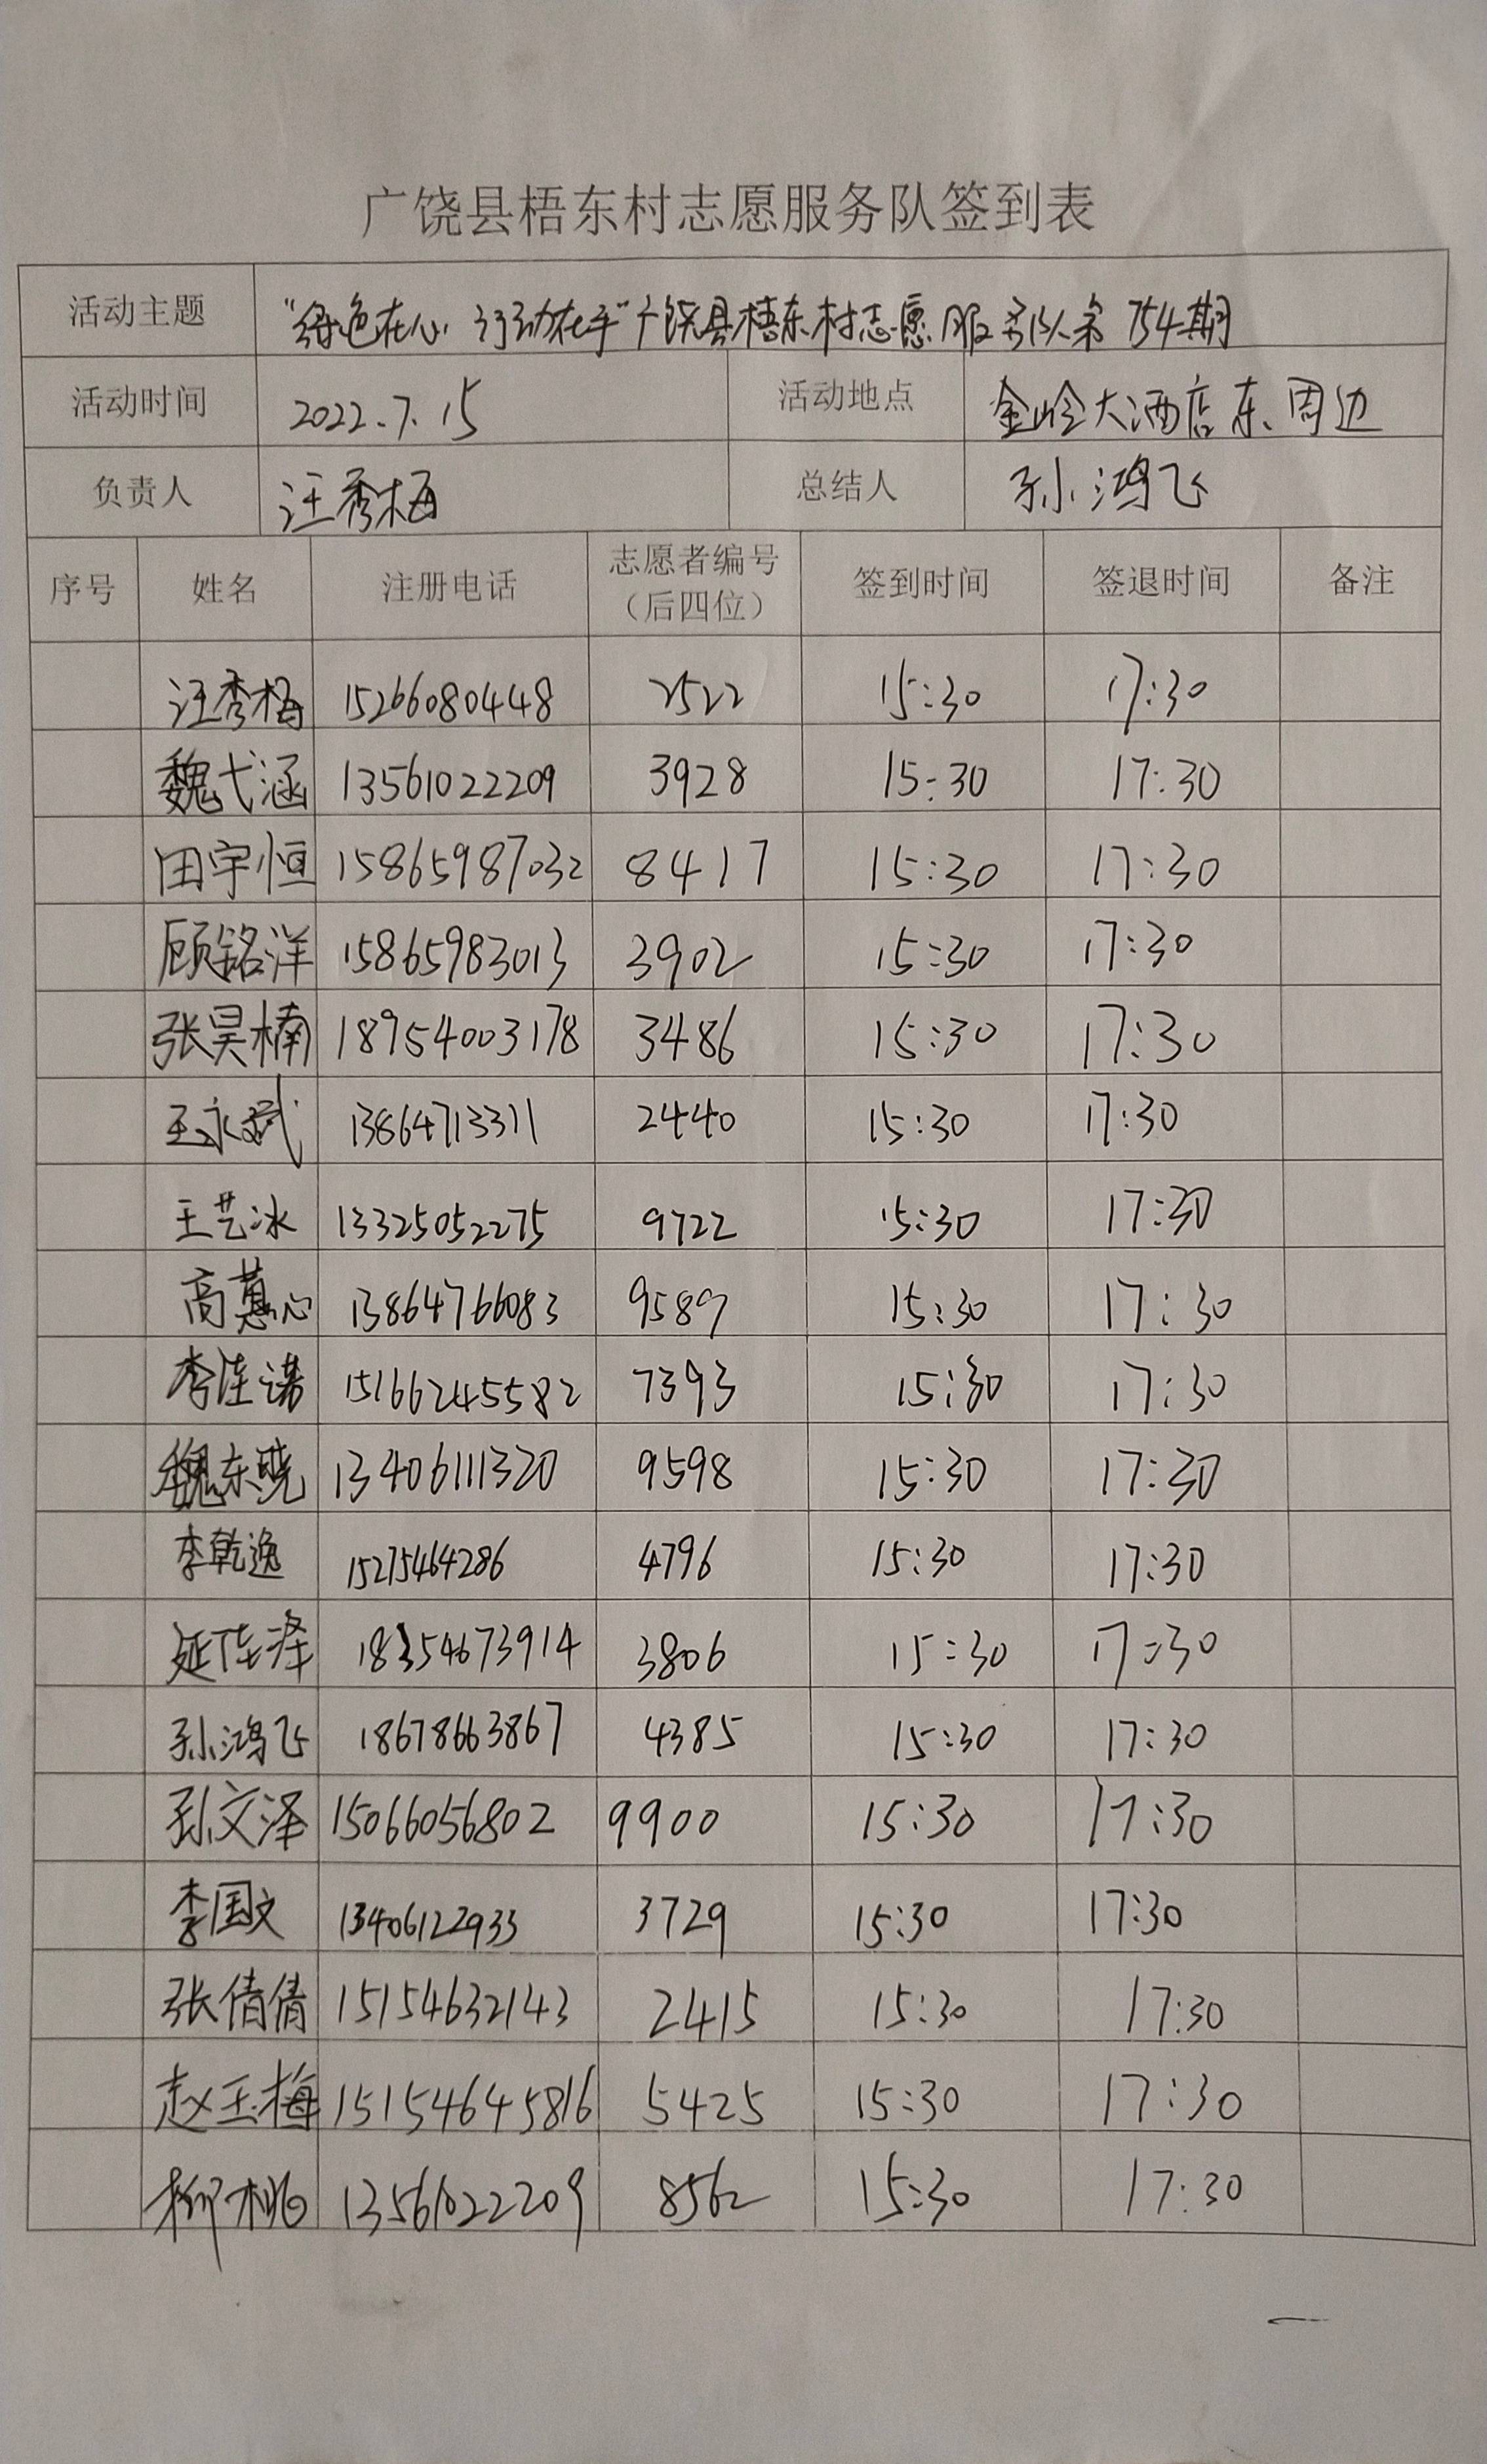 广饶县梧东村志愿服务队签到表
活动主题 "绿色在心 行动在手"广饶县梧东村志愿服务队第754期
活动时间 2022.7.15 活动地点 金岭大酒店东周边
负责人 汪秀梅 总结人 孙鸿飞
序号 姓名 注册电话 志愿者编号（后四位） 签到时间 签退时间 备注
汪秀梅 15266080448 2522 15:30 17:30
魏弋涵 13561022209 3928 15:30 17:30
田宇恒 15865987032 8417 15:30 17:30
顾铭洋 15865983013 3902 15:30 17:30
张昊楠 18954003178 3486 15:30 17:30
王永斌 13864713311 2440 15:30 17:30
王艺冰 13325052275 9722 15:30 17:30
高蕙心 13864766083 9589 15:30 17:30
李佳诺 15166245582 7393 15:30 17:30
魏东晓 13406111320 9598 15:30 17:30
李乾逸 15275464286 4796 15:30 17:30
延佳泽 18354673914 3806 15:30 17:30
孙鸿飞 18678663867 4385 15:30 17:30
孙文泽 15066056802 9900 15:30 17:30
李国文 13406122933 3729 15:30 17:30
张倩倩 15154632143 2415 15:30 17:30
赵玉梅 15154645816 5425 15:30 17:30
柳桃 13561022209 8562 15:30 17:30